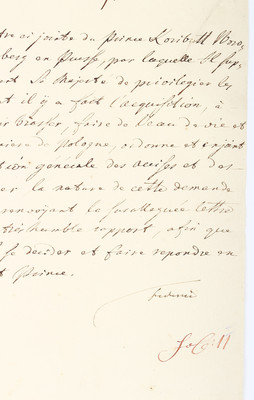 ci jointe du Prince Koributt Woro,
berg en Prusse, par laquelle Il sup,
ant Sa Majesté de privilegier les
t il y a fait l'acquisition, à
brasser, faire de l'eau de vie et
niere de Pologne, ordonne et enjoint
tion générale des accises et des
er la nature de cette demande
renvoyant la susalleguée lettre
très humble rapport, afin que
se decider et faire repondre en
t Prince.
Federic